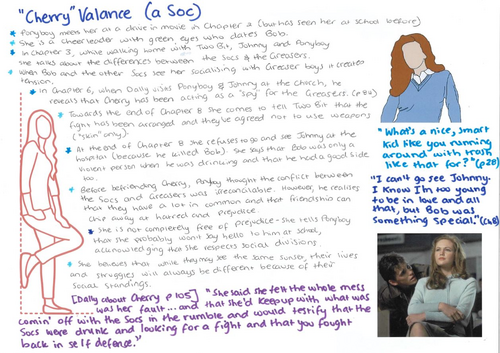 "Cherry" Valance (a Soc)
Ponyboy meets her at a drive in movie in Chapter 2 (but has seen her at school before)
She is a cheerleader with green eyes who dates Bob.
In Chapter 3, while walking home with Two Bit, Johnny and Ponyboy
she talks about the differences between the Socs & the Greasers.
When Bob and the other Socs see her socialising with Greaser boys it created
tension.
In Chapter 6, when Dally visits Ponyboy & Johnny at the church, he
reveals that Cherry has been acting as a "spy" for the Greasers. (p84)
Towards the end of Chapter 8 she comes to tell Two Bit that the
fight has been arranged and they've agreed not to use weapons
("skin" only).
At the end of Chapter 8 she refuses to go and see Johnny at the
hospital (because he killed Bob). She says that Bob was only a
violent person when he was drinking and that he had a good side
too.
Before befriending Cherry, Ponyboy thought the conflict between
the Socs and Greasers was irreconcilable. However, he realises
that they have a lot in common and that friendship can
chip away at hatred and prejudice
She is not completely free of prejudice - she tells Ponyboy
that she probably won't say hello to him at school,
acknowledging that she respects social divisions.
She believes that while they may see the same sunset, their lives
and struggles will always be different because of their
social standings.
[Dally about Cherry p 105] "She said she felt the whole mess
was her fault... and that she'd keep up with what was
comin' off with the Socs in the rumble and would testify that the
Socs were drunk and looking for a fight and that you fought
back in self defence."
"What's a nice, smart
kid like you running
around with trash
like that for?" (p28)
"I can't go see Johnny.
I know I'm too young
to be in love and all
that, but Bob was
something special." (Ch8)